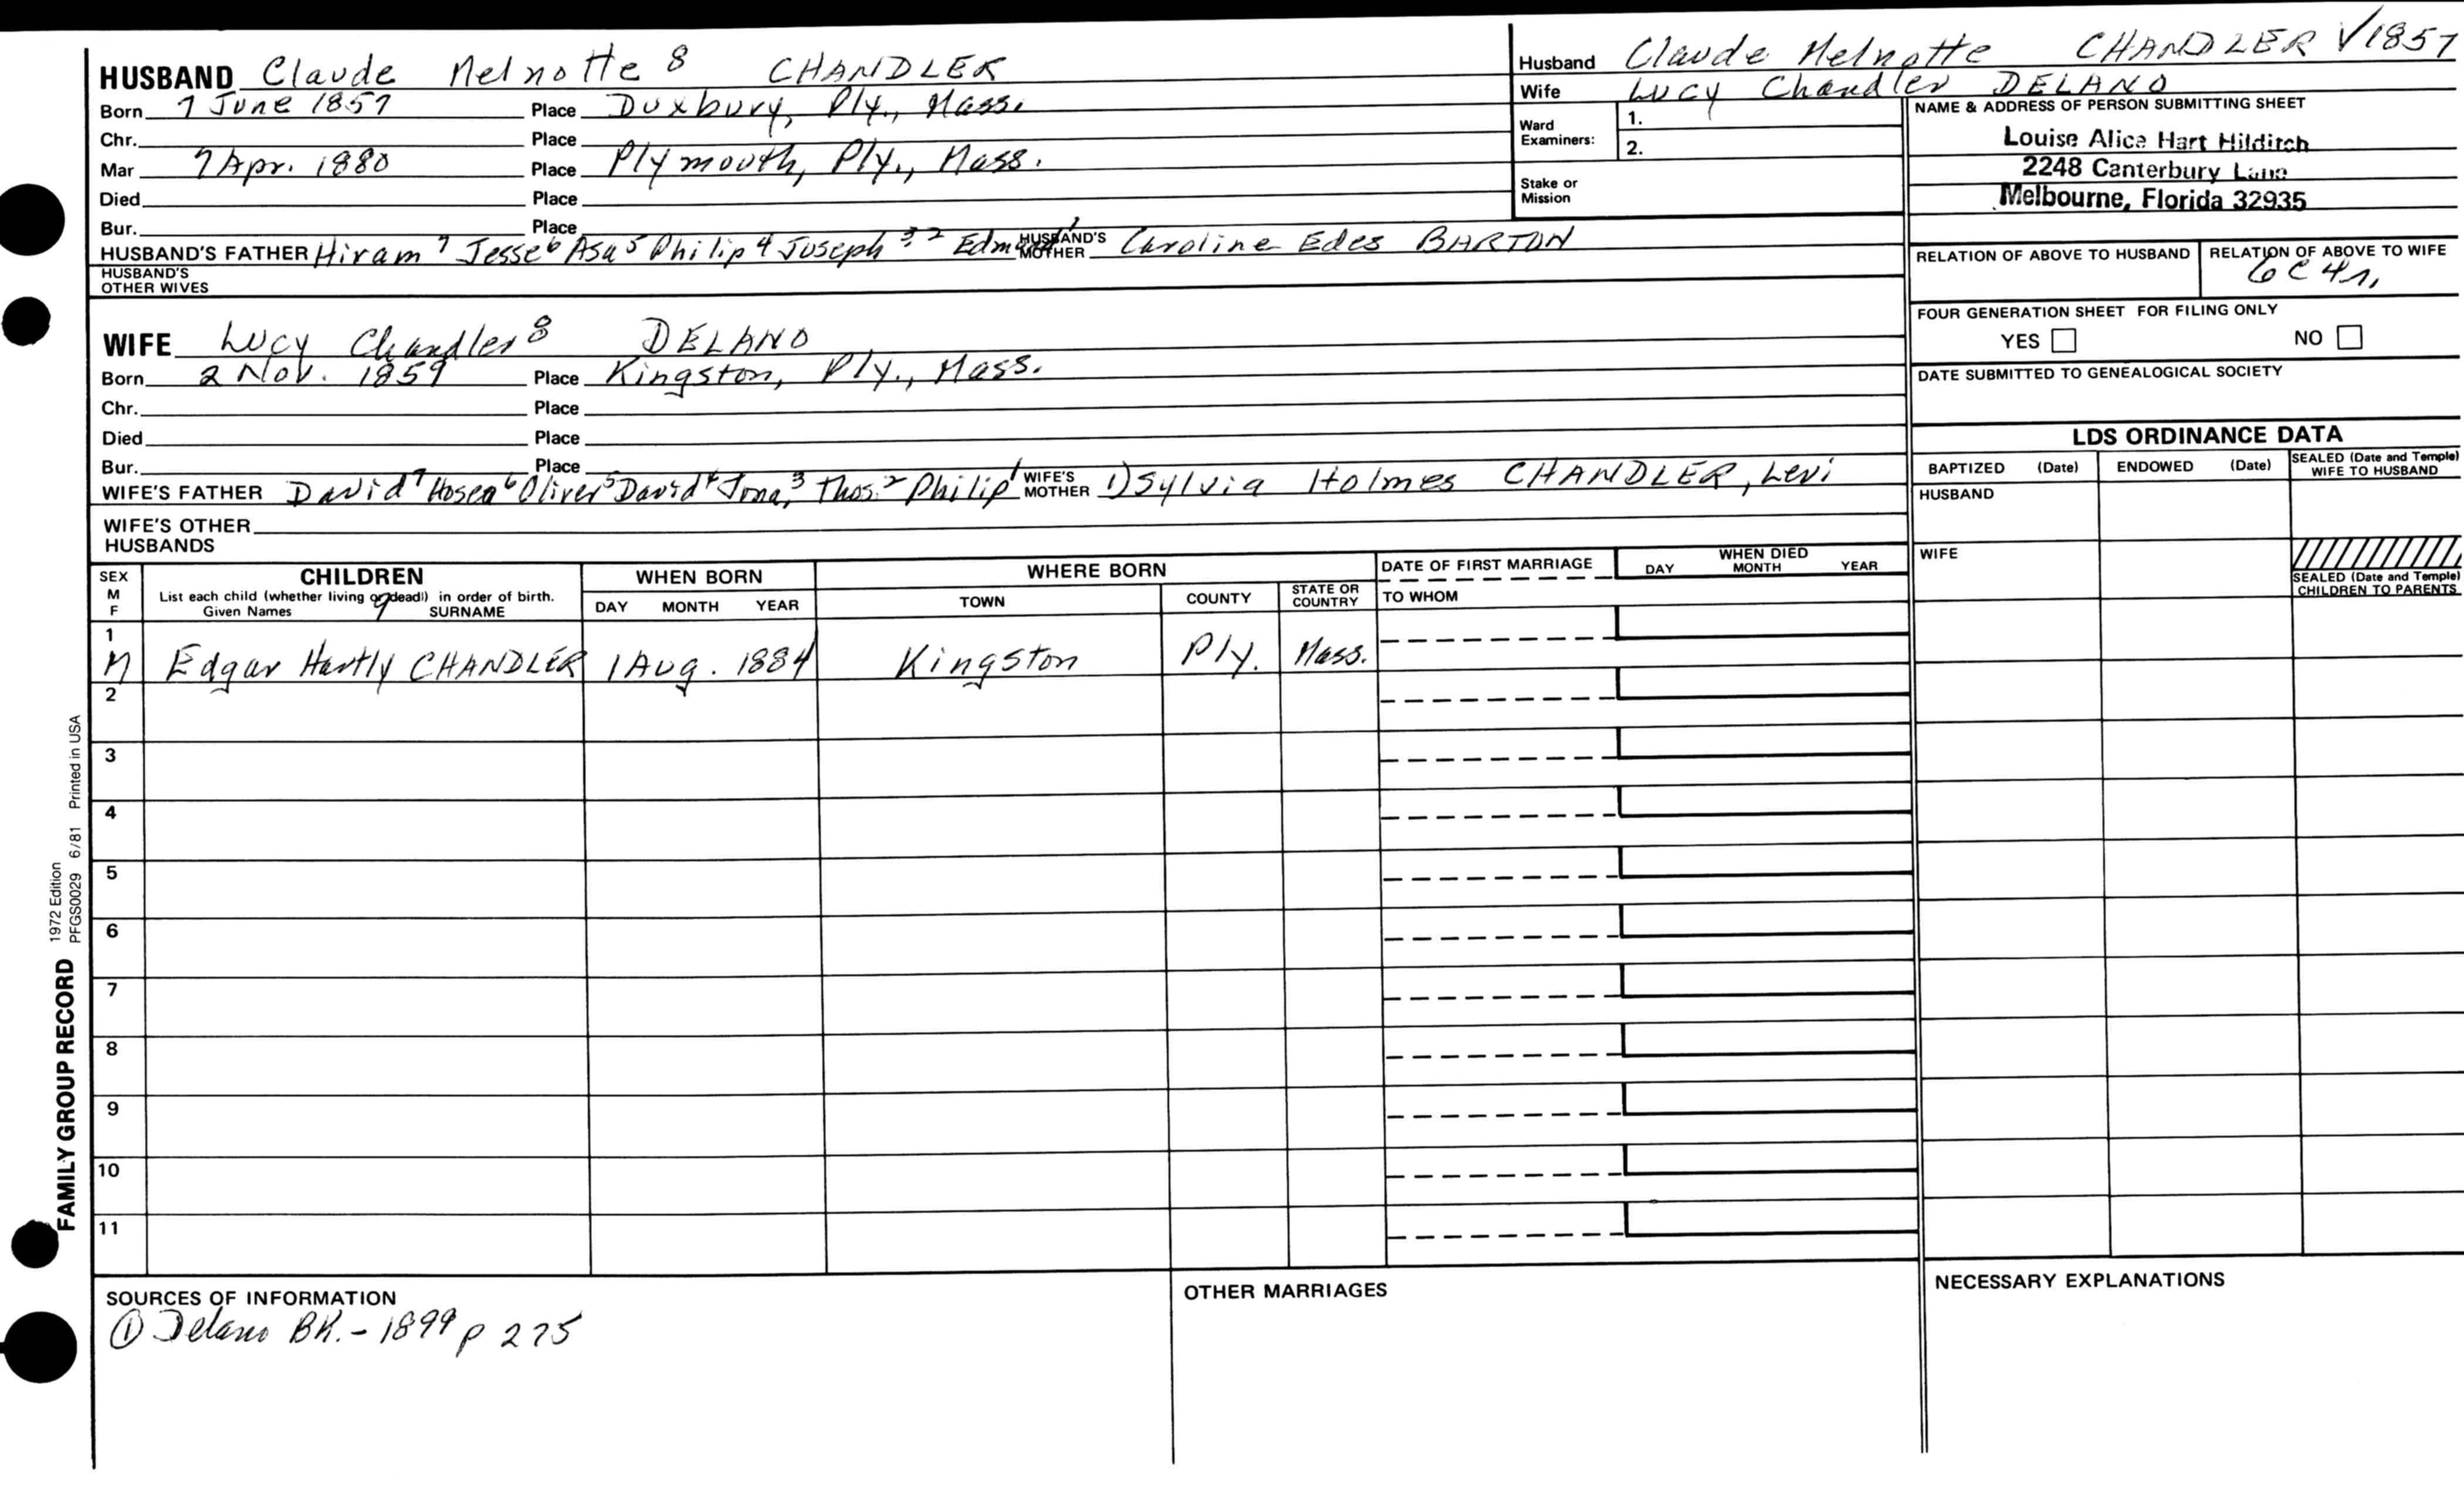 HUSBAND Claude Melnotte 8 CHANDLER
Born 7 June 1857 Place Duxbury, Ply., Mass.
Chr. Place
Mar 7 Apr. 1880 Place Plymouth, Ply., Mass.
Died Place
Bur. Place
HUSBAND'S FATHER Hiram 7 Jesse 6 Asa 5 Philip 4 Joseph 3 2 Edmund 1 HUSBAND'S MOTHER Caroline Edes BARTON
HUSBAND'S OTHER WIVES
Husband Claude Melnotte CHANDLER √1857
Wife Lucy Chandler DELANO
Ward Examiners: 1.
2.
Stake or Mission
NAME & ADDRESS OF PERSON SUBMITTING SHEET
Louise Alice Hart Hilditch
2248 Canterbury Lane
Melbourne, Florida 32935
RELATION OF ABOVE TO HUSBAND RELATION OF ABOVE TO WIFE
6C4r.
FOUR GENERATION SHEET FOR FILING ONLY
YES NO
DATE SUBMITTED TO GENEALOGICAL SOCIETY
WIFE Lucy Chandler 8 DELANO
Born 2 Nov. 1859 Place Kingston, Ply., Mass.
Chr. Place
Died Place
Bur. Place
WIFE'S FATHER David 7 Hosea 6 Oliver 5 David 4 Jona. 3 Thos. 2 Philip 1 WIFE'S MOTHER 1) Sylvia Holmes CHANDLER, Levi
WIFE'S OTHER HUSBANDS
LDS ORDINANCE DATA
BAPTIZED (Date) ENDOWED (Date) SEALED (Date and Temple) WIFE TO HUSBAND
HUSBAND
WIFE
SEALED (Date and Temple) CHILDREN TO PARENTS
SEX M F CHILDREN List each child (whether living or dead) in order of birth. Given Names SURNAME
WHEN BORN DAY MONTH YEAR
WHERE BORN TOWN COUNTY STATE OR COUNTRY
DATE OF FIRST MARRIAGE TO WHOM
WHEN DIED DAY MONTH YEAR
1
M Edgar Hartly CHANDLER 1 Aug. 1884 Kingston Ply. Mass.
2
3
4
5
6
7
8
9
10
11
SOURCES OF INFORMATION
① Delano BK. - 1899 p 275
OTHER MARRIAGES
NECESSARY EXPLANATIONS
FAMILY GROUP RECORD 1972 Edition
PFGS0029 6/81 Printed in USA